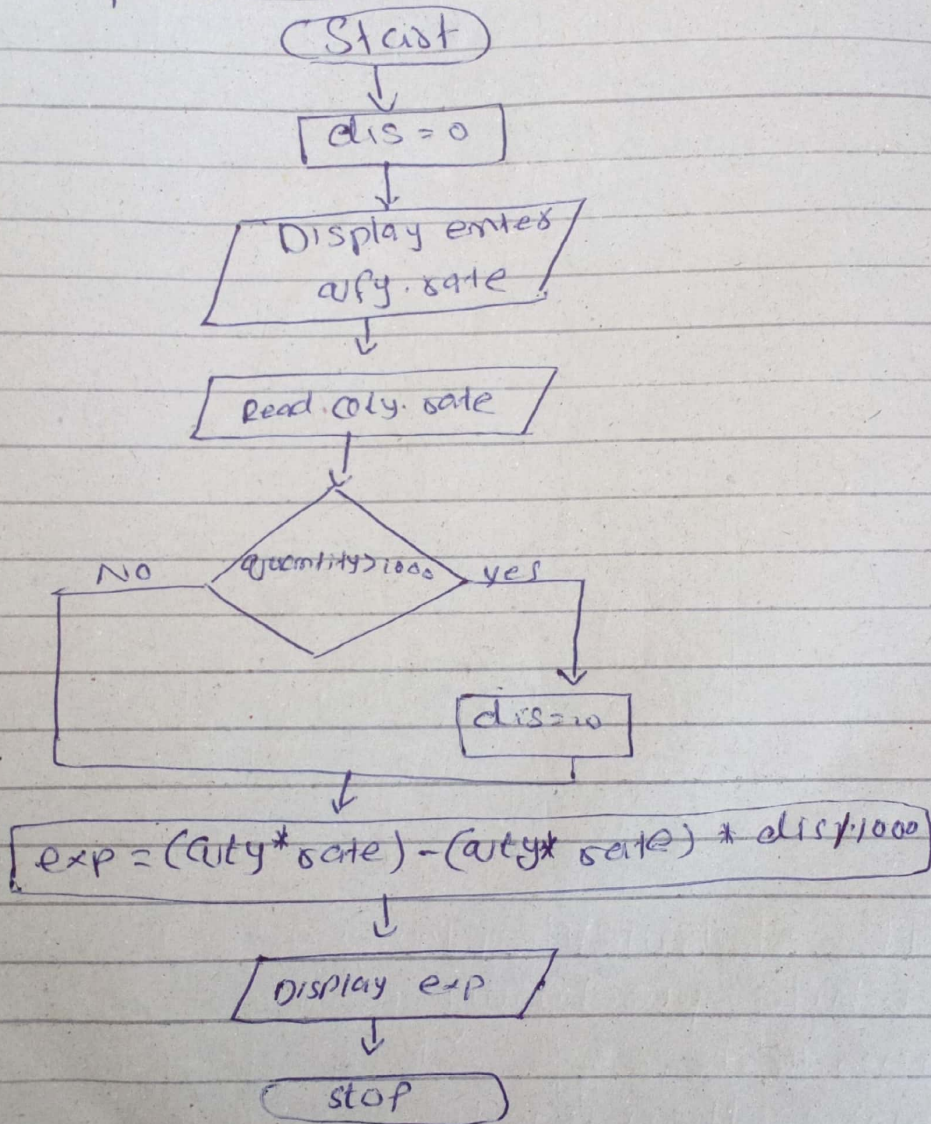 Start
dis = 0
Display enter
qty. rate
Read. qty. rate
quantity>1000
No
yes
dis=10
exp = (qty* rate) - (qty* rate) * dis/.1000
Display exp
stop